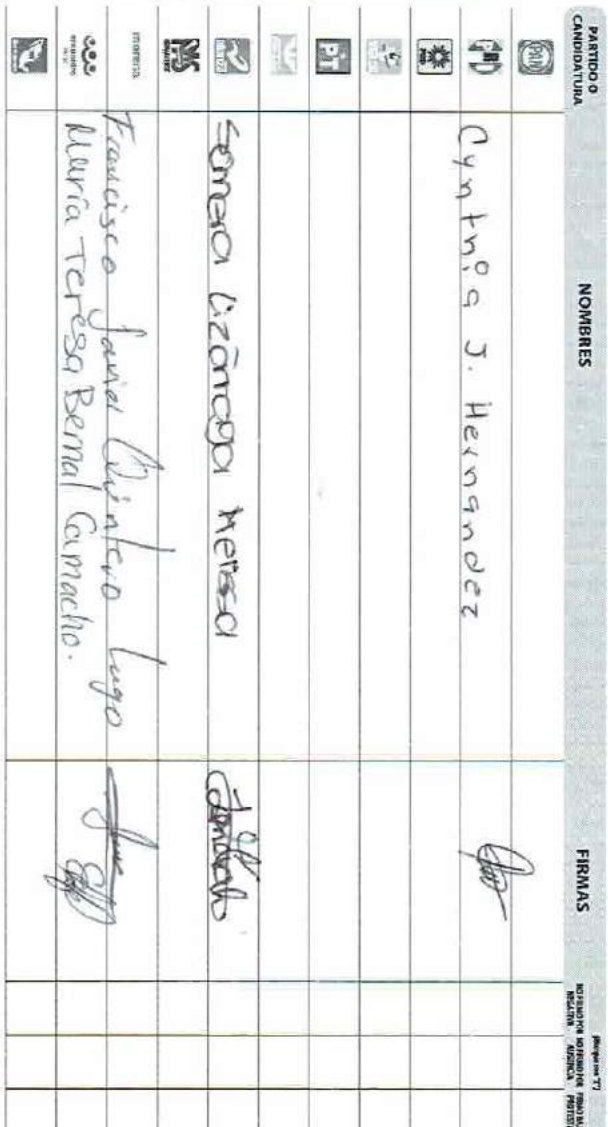 PARTIDO O CANDIDATURA
NOMBRES
FIRMAS
NO FIRMÓ POR NEGATIVA
NO FIRMÓ POR AUSENCIA
PAN
PRD
Cynthia J. Hernandez
PT
Somera Lizárraga Melissa
PAS
morena
Francisco Javier Quintero Lugo
encuentro
María Teresa Bernal Camacho.